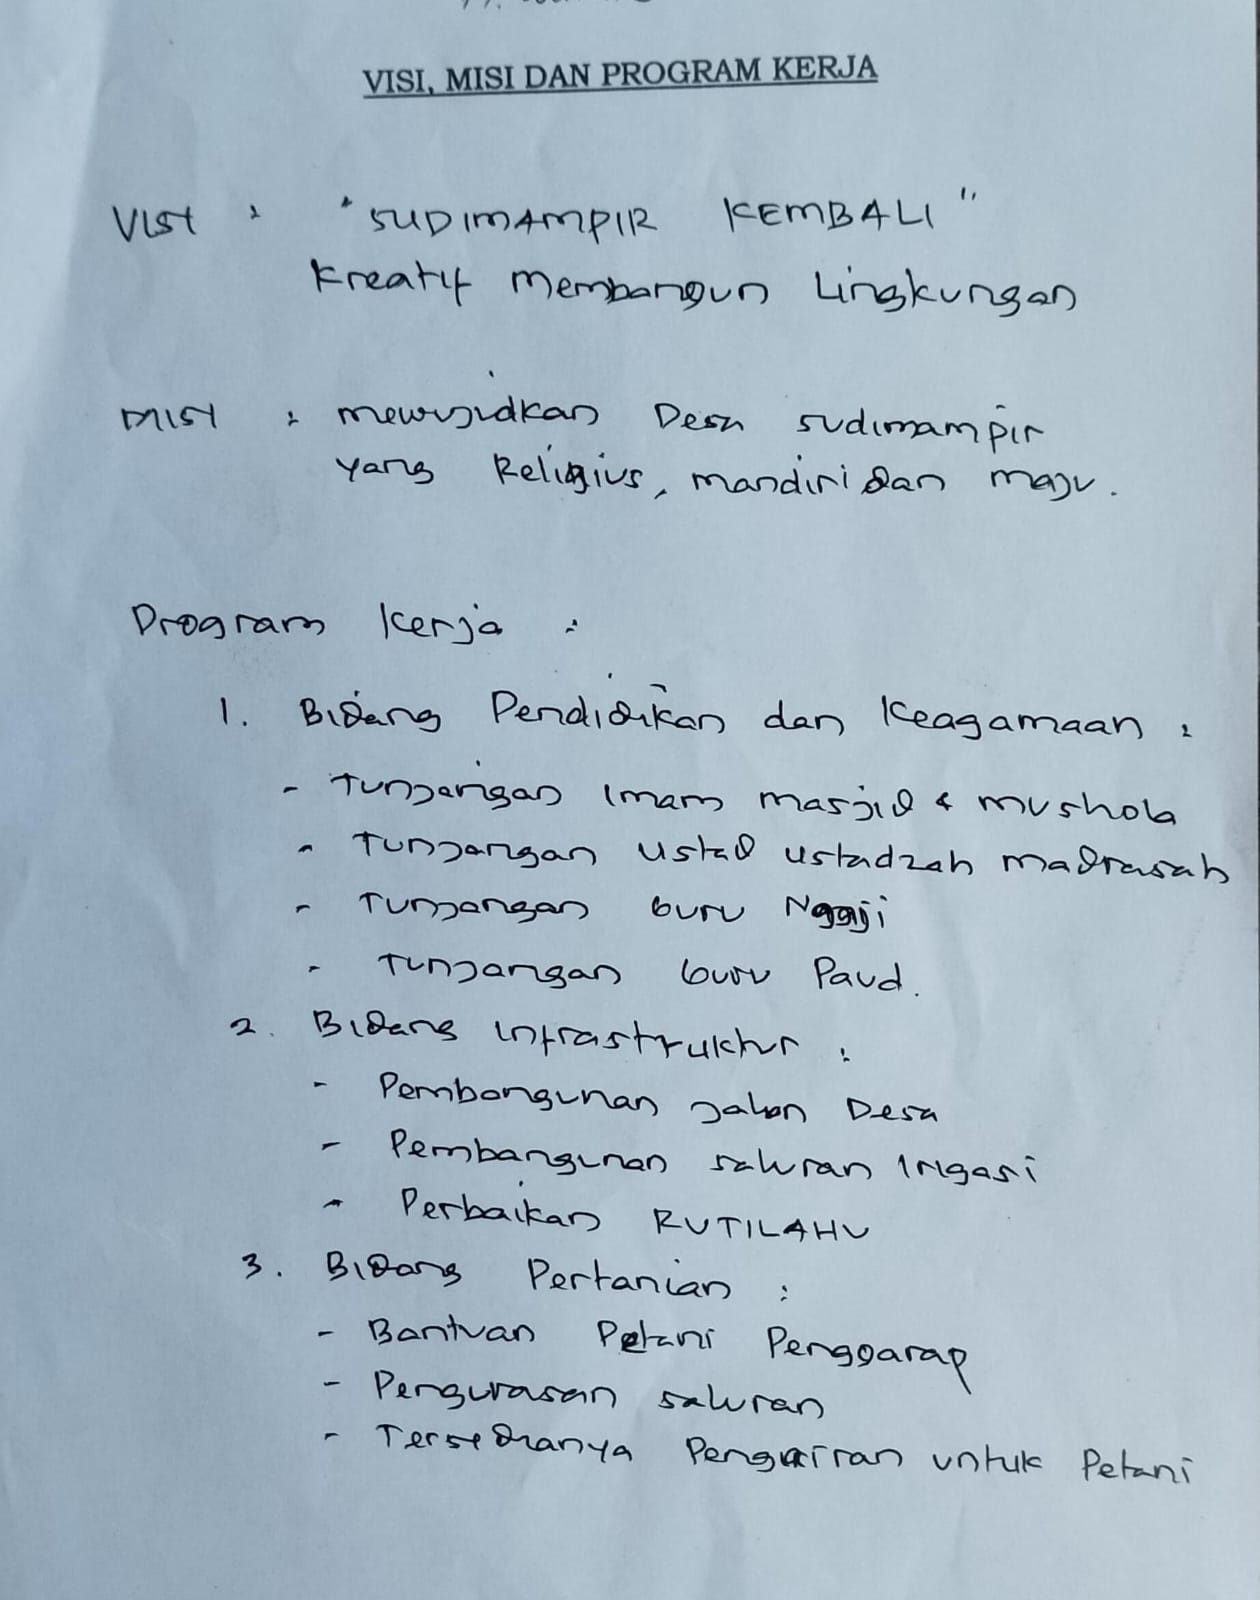 VISI, MISI DAN PROGRAM KERJA
VISI : "SUDIMAMPIR KEMBALI"
Kreatif Membangun Lingkungan
MISI : mewujudkan Desa sudimampir
yang Religius, mandiri dan maju.
Program Kerja :
1. Bidang Pendidikan dan Keagamaan :
- Tunjangan Imam masjid & mushola
- Tunjangan ustad ustadzah madrasah
- Tunjangan Guru Ngaji
- Tunjangan Guru Paud.
2. Bidang Infrastruktur :
- Pembangunan Jalan Desa
- Pembangunan saluran Irigasi
- Perbaikan RUTILAHU
3. Bidang Pertanian :
- Bantuan Petani Penggarap
- Pengurasan saluran
- Tersedianya Pengairan untuk Petani